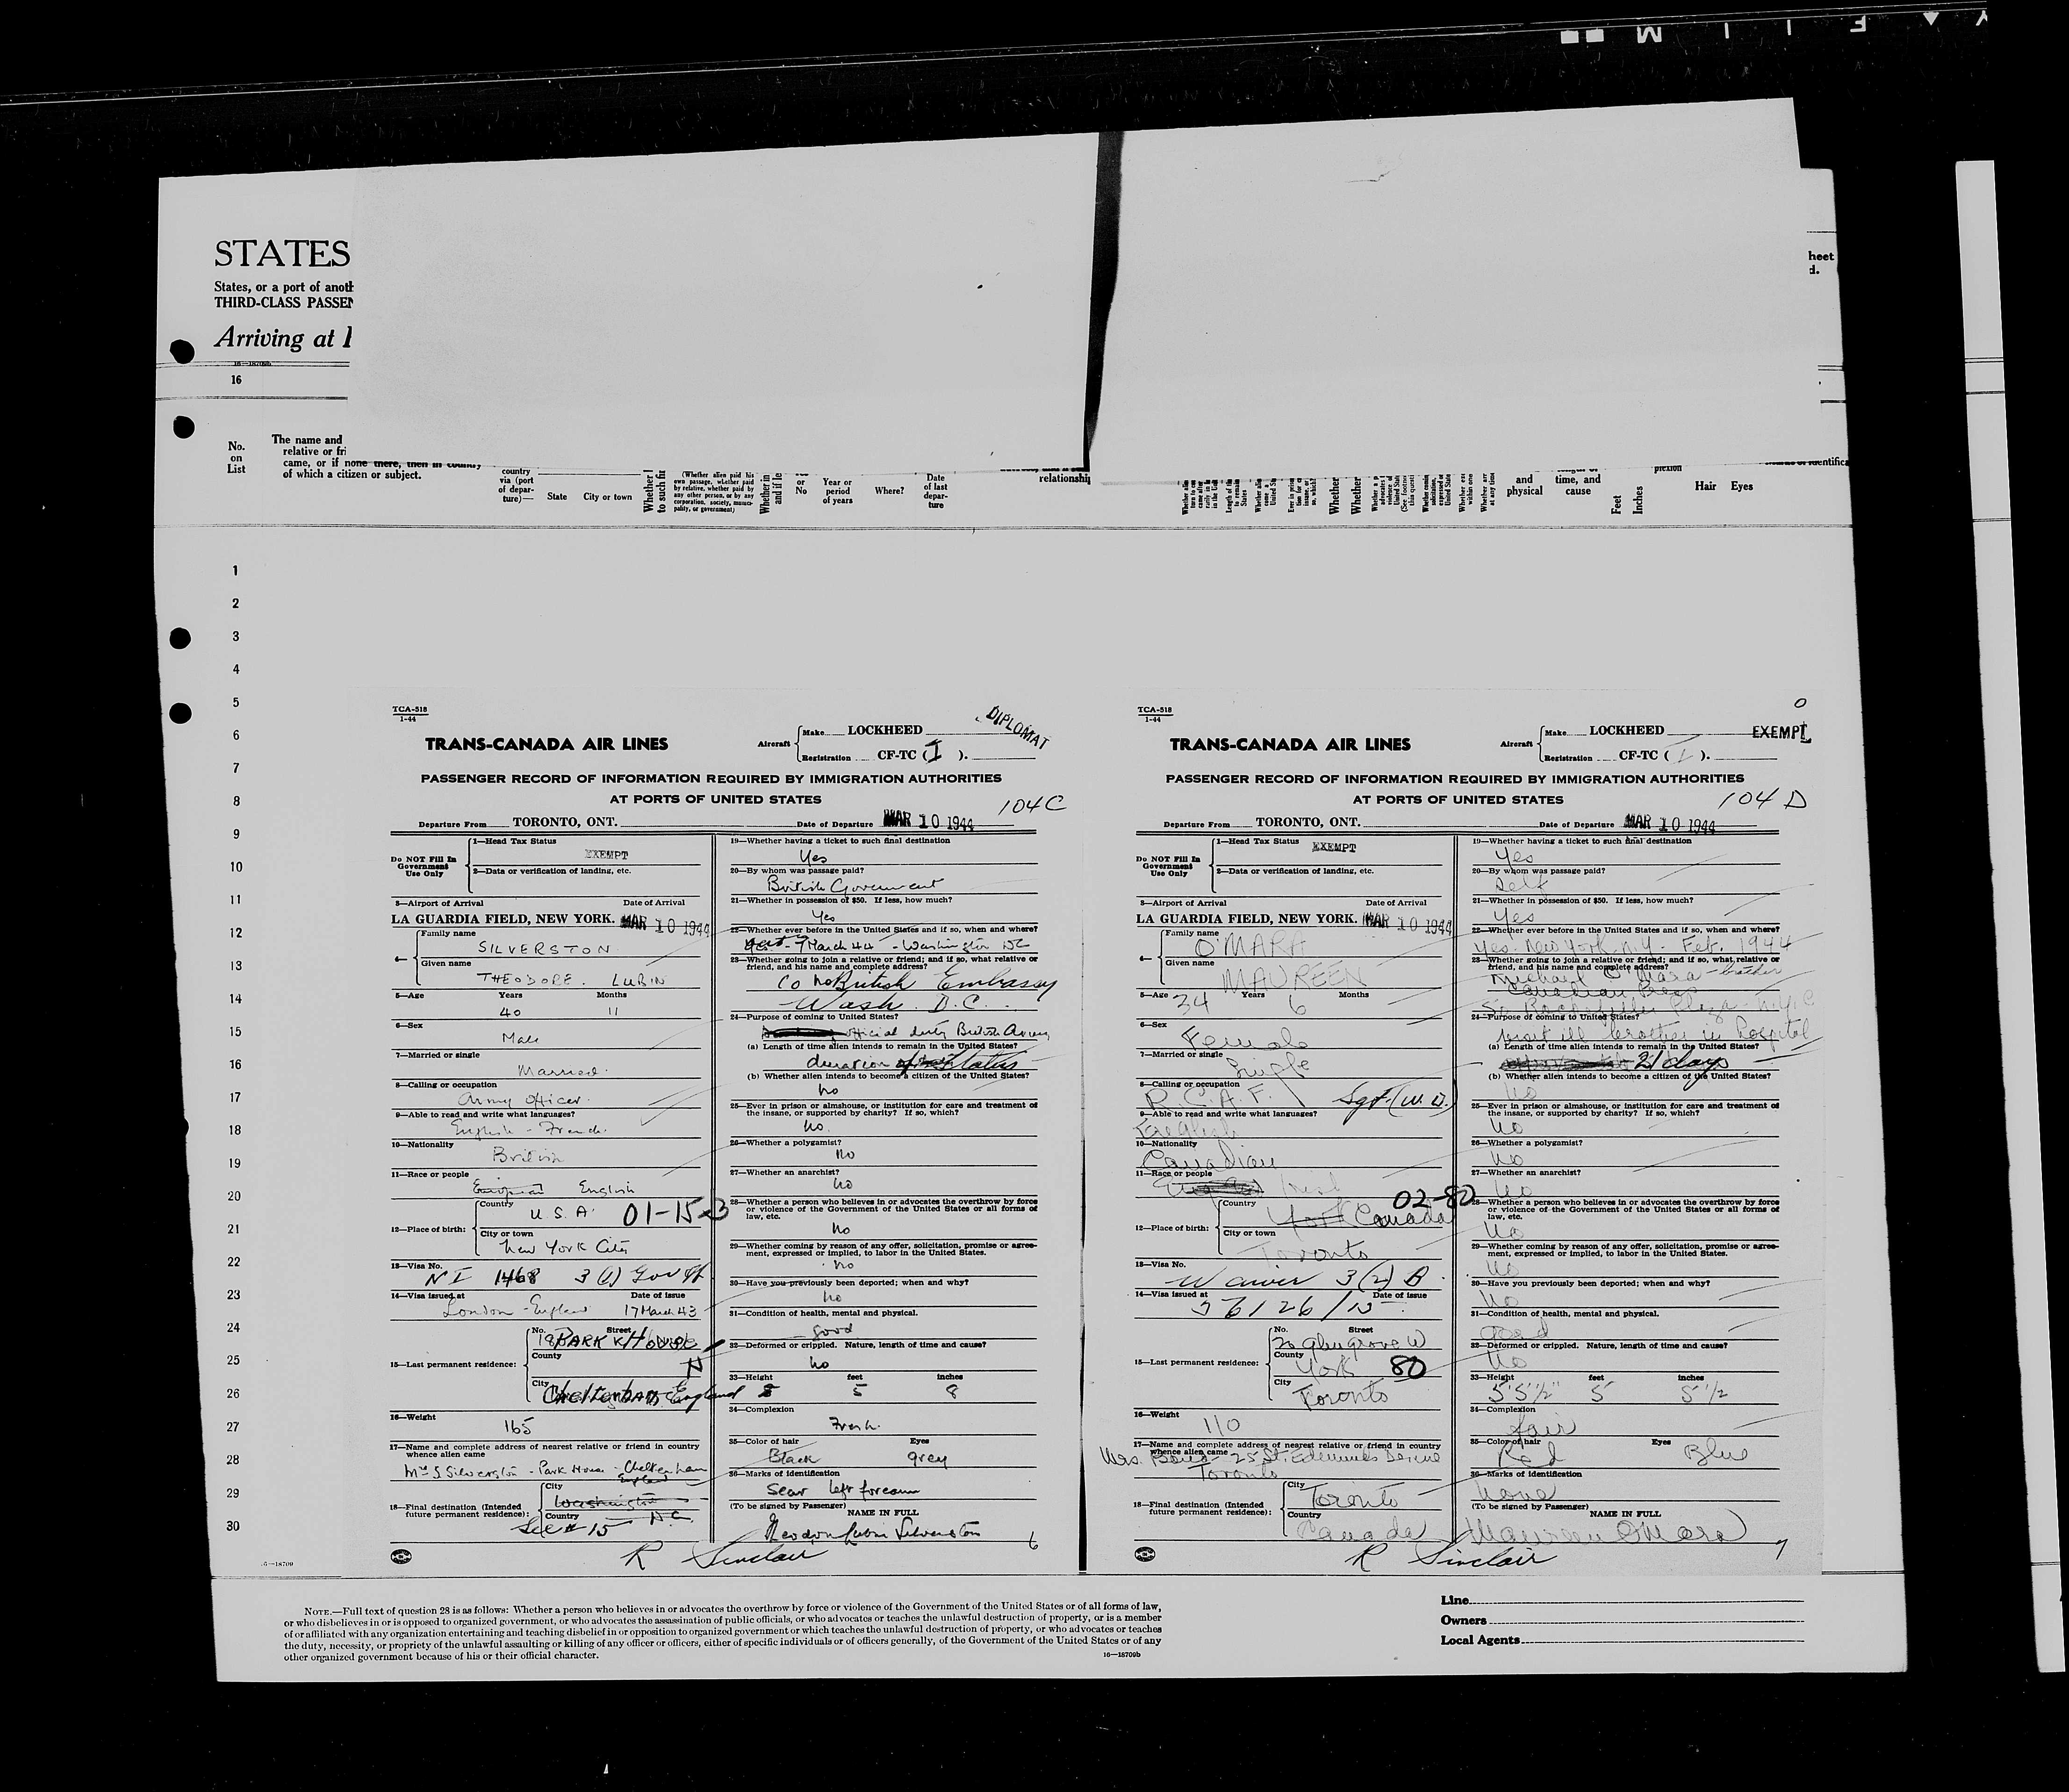 FILM
STATES
States, or a port of anoth
THIRD-CLASS PASSEN
Arriving at
16
heet
d.
No. on List
The name and
relative or fri
came, or if none there, then in country
of which a citizen or subject.
country via (port of depar- ture)—
State
City or town
(Whether alien paid his own passage, whether paid by relative, whether paid by any other person, or by any corporation, society, munici- pality, or government)
or No
Year or period of years
Where?
Date of last depar- ture
relationship
and physical
time, and cause
Feet
Inches
plexion
Hair
Eyes
1
2
3
4
5
6
7
8
9
10
11
12
13
14
15
16
17
18
19
20
21
22
23
24
25
26
27
28
29
30
TCA-518
1-44
DIPLOMAT
TRANS-CANADA AIR LINES
Aircraft
Make LOCKHEED
Registration CF-TC (I).
PASSENGER RECORD OF INFORMATION REQUIRED BY IMMIGRATION AUTHORITIES
AT PORTS OF UNITED STATES
104 C
Departure From TORONTO, ONT. Date of Departure MAR 10 1944
Do NOT Fill In Government Use Only
1—Head Tax Status
EXEMPT
2—Data or verification of landing, etc.
3—Airport of Arrival Date of Arrival
LA GUARDIA FIELD, NEW YORK. MAR 10 1944
4—
Family name
SILVERSTON
Given name
THEODORE. LUBIN
5—Age Years Months
40 11
6—Sex
Male
7—Married or single
Married.
8—Calling or occupation
Army Officer.
9—Able to read and write what languages?
English - French.
10—Nationality
British
11—Race or people
European English
12—Place of birth:
Country
U.S.A. 01-15-3
City or town
New York City
13—Visa No.
NI 1468 3(1) Gov't
14—Visa issued at Date of issue
London - England 17 March 43
15—Last permanent residence:
No. Street
PARK HOUSE
County
N
City
Cheltenham England
16—Weight
165
17—Name and complete address of nearest relative or friend in country whence alien came
Mrs S Silverston - Park House - Cheltenham England
18—Final destination (Intended future permanent residence):
City
Washington
Country
D.C.
See # 15
19—Whether having a ticket to such final destination
Yes
20—By whom was passage paid?
British Government
21—Whether in possession of $50. If less, how much?
Yes
22—Whether ever before in the United States and if so, when and where?
Yes - 7 March 44 - Washington DC
23—Whether going to join a relative or friend; and if so, what relative or friend, and his name and complete address?
British Embassy
Wash. D.C.
24—Purpose of coming to United States?
official duty British Army
(a) Length of time alien intends to remain in the United States?
duration of status
(b) Whether alien intends to become a citizen of the United States?
No
25—Ever in prison or almshouse, or institution for care and treatment of the insane, or supported by charity? If so, which?
No.
26—Whether a polygamist?
No
27—Whether an anarchist?
No
28—Whether a person who believes in or advocates the overthrow by force or violence of the Government of the United States or all forms of law, etc.
No
29—Whether coming by reason of any offer, solicitation, promise or agree- ment, expressed or implied, to labor in the United States.
No
30—Have you previously been deported; when and why?
No
31—Condition of health, mental and physical.
good
32—Deformed or crippled. Nature, length of time and cause?
No
33—Height feet inches
5 8
34—Complexion
Fresh.
35—Color of hair Eyes
Black grey
36—Marks of identification
Scar left forearm
(To be signed by Passenger) NAME IN FULL
Theodore Lubin Silverston
6
R Sinclair
TCA-518
1-44
O
EXEMPT
TRANS-CANADA AIR LINES
Aircraft
Make LOCKHEED
Registration CF-TC (I).
PASSENGER RECORD OF INFORMATION REQUIRED BY IMMIGRATION AUTHORITIES
AT PORTS OF UNITED STATES
104 D
Departure From TORONTO, ONT. Date of Departure MAR 10 1944
Do NOT Fill In Government Use Only
1—Head Tax Status
EXEMPT
2—Data or verification of landing, etc.
3—Airport of Arrival Date of Arrival
LA GUARDIA FIELD, NEW YORK. MAR 10 1944
4—
Family name
O'MARA
Given name
MAUREEN
5—Age Years Months
34 6
6—Sex
Female
7—Married or single
Single
8—Calling or occupation
R.C.A.F. Sgt. (W.D.)
9—Able to read and write what languages?
English
10—Nationality
Canadian
11—Race or people
Irish
12—Place of birth:
Country 02-80
York Canada
City or town
Toronto
13—Visa No.
Waiver 3(2) B.
14—Visa issued at Date of issue
56126/15
15—Last permanent residence:
No. Street
20 Glengrove W
County
York 80
City
Toronto
16—Weight
110
17—Name and complete address of nearest relative or friend in country whence alien came
Mrs. 25 St. Edmunds Drive
Toronto
18—Final destination (Intended future permanent residence):
City
Toronto
Country
Canada
19—Whether having a ticket to such final destination
Yes
20—By whom was passage paid?
Self
21—Whether in possession of $50. If less, how much?
Yes
22—Whether ever before in the United States and if so, when and where?
Yes. New York N.Y - Feb. 1944
23—Whether going to join a relative or friend; and if so, what relative or friend, and his name and complete address?
Michael O'Mara - brother
Canadian Press
50 Rockefeller Plaza - NYC
24—Purpose of coming to United States?
visit ill brother in hospital
(a) Length of time alien intends to remain in the United States?
21 days
(b) Whether alien intends to become a citizen of the United States?
No
25—Ever in prison or almshouse, or institution for care and treatment of the insane, or supported by charity? If so, which?
No
26—Whether a polygamist?
No
27—Whether an anarchist?
No
28—Whether a person who believes in or advocates the overthrow by force or violence of the Government of the United States or all forms of law, etc.
No
29—Whether coming by reason of any offer, solicitation, promise or agree- ment, expressed or implied, to labor in the United States.
No
30—Have you previously been deported; when and why?
No
31—Condition of health, mental and physical.
good
32—Deformed or crippled. Nature, length of time and cause?
No
33—Height feet inches
5'5½" 5 5½
34—Complexion
fair
35—Color of hair Eyes
Red Blue
36—Marks of identification
None
(To be signed by Passenger) NAME IN FULL
Maureen O'Mara
7
R Sinclair
16—18709
NOTE.—Full text of question 28 is as follows: Whether a person who believes in or advocates the overthrow by force or violence of the Government of the United States or of all forms of law,
or who disbelieves in or is opposed to organized government, or who advocates the assassination of public officials, or who advocates or teaches the unlawful destruction of property, or is a member
of or affiliated with any organization entertaining and teaching disbelief in or opposition to organized government or which teaches the unlawful destruction of property, or who advocates or teaches
the duty, necessity, or propriety of the unlawful assaulting or killing of any officer or officers, either of specific individuals or of officers generally, of the Government of the United States or of any
other organized government because of his or their official character.
16—18709b
Line
Owners
Local Agents